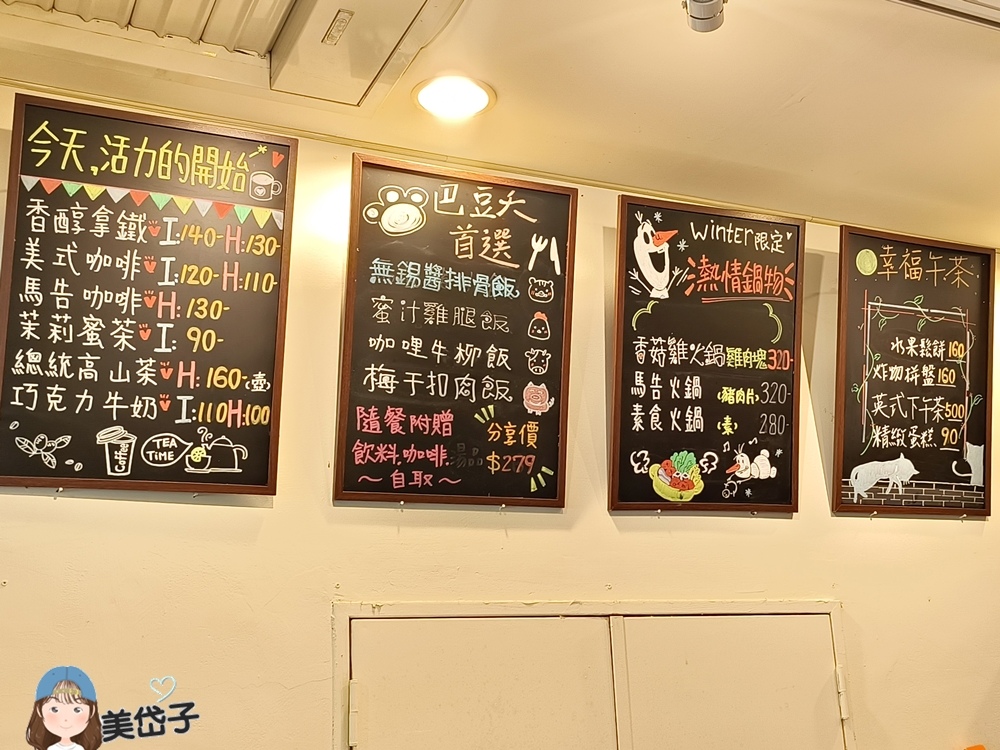 今天,活力的開始
香醇拿鐵 I:140- H:130-
美式咖啡 I:120- H:110-
馬告咖啡 H:130-
茉莉蜜茶 I: 90-
總統高山茶 H: 160-(壺)
巧克力牛奶 I:110 H:100
Coffee
TEA
TiME
巴豆夭
首選
無錫醬排骨飯
蜜汁雞腿飯
咖哩牛柳飯
梅干扣肉飯
隨餐附贈
飲料.咖啡.湯品
~自取~
分享價
$279
Winter限定
熱情鍋物
香菇雞火鍋 雞肉塊 320-
馬告火鍋 (豬肉片) 320-
素食火鍋 (素) 280-
幸福午茶
水果鬆餅 160
炸物拼盤 160
英式下午茶 500
精緻蛋糕 90
美岱子